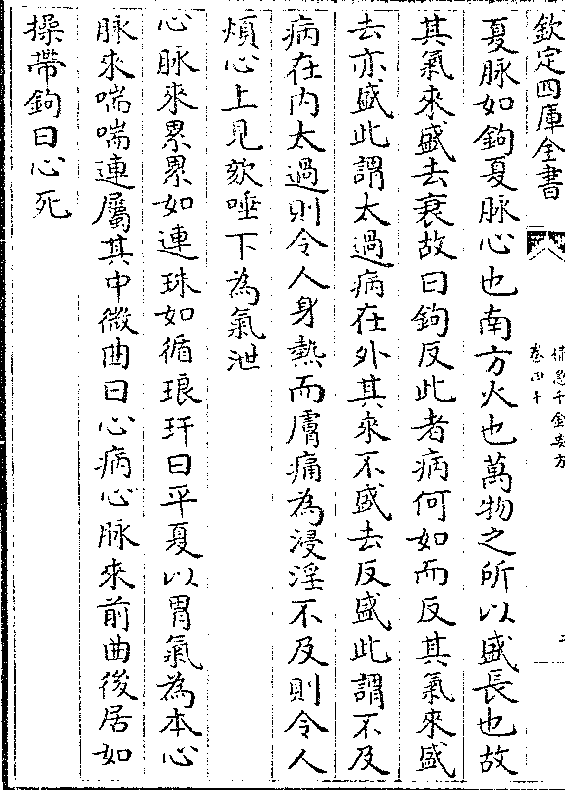 欽定四庫全書
備急千金要方
卷四十
夏脉如鉤夏脉心也南方火也萬物之所以盛長也故
其氣來盛去衰故曰鉤反此者病何如而反其氣來盛
去亦盛此謂太過病在外其來不盛去反盛此謂不及
病在内太過則令人身熱而膚痛為浸淫不及則令人
煩心上見欬唾下為氣泄
心脉來累累如連珠如循琅玕曰平夏以胃氣為本心
脉來喘喘連屬其中微曲曰心病心脉來前曲後居如
操帶鉤曰心死